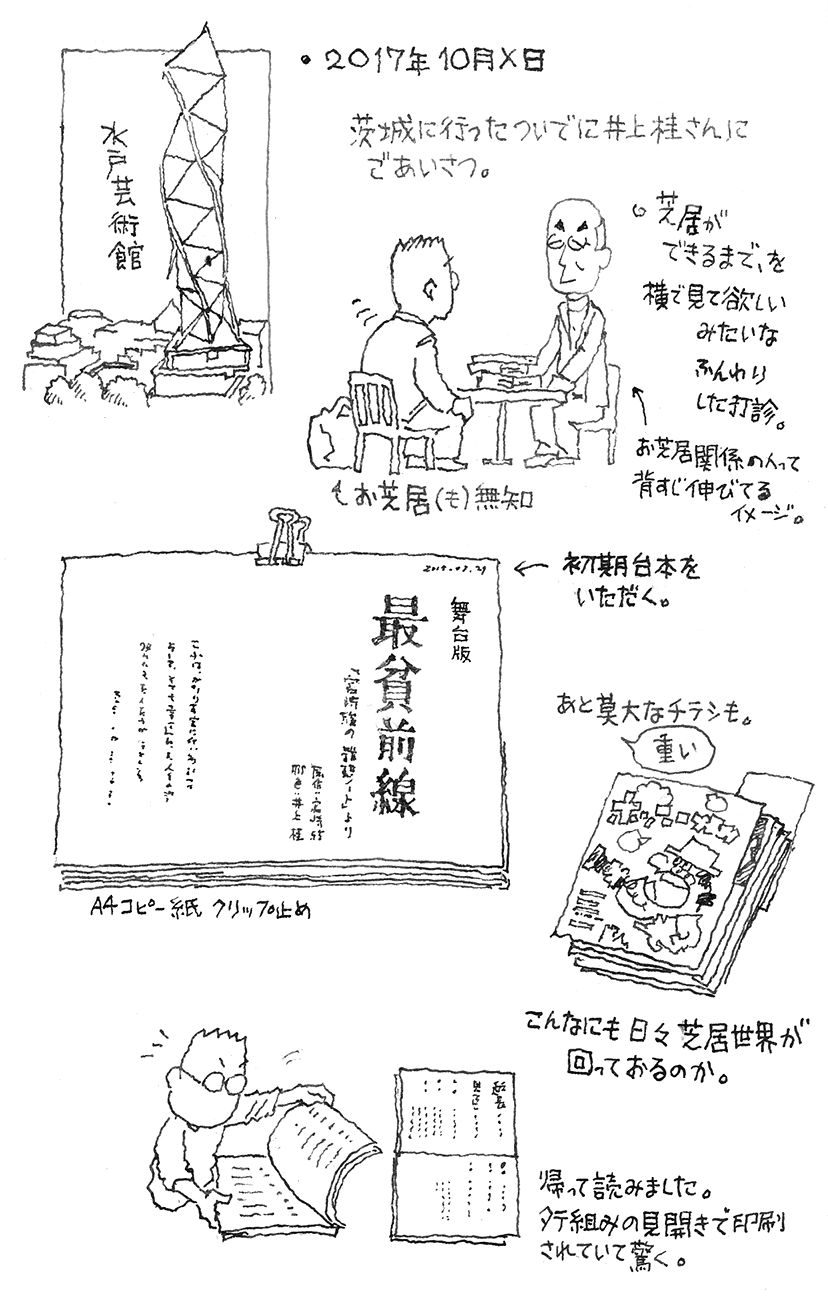 ・2017年10月X日
茨城に行ったついでに井上桂さんに
ごあいさつ。
水戸芸術館
。芝居が
できるまで、を
横で見て欲しい
みたいな
ふんわり
した打診。
お芝居関係の人って
背すじ伸びてる
イメージ。
お芝居(も)無知
初期台本を
いただく。
舞台版
最貧前線
「宮崎駿の雑想ノート」より
井上桂
A4コピー紙 クリップ止め
あと莫大なチラシも。
重い
こんなにも日々芝居世界が
回っておるのか。
帰って読みました。
タテ組みの見開きで印刷
されていて驚く。